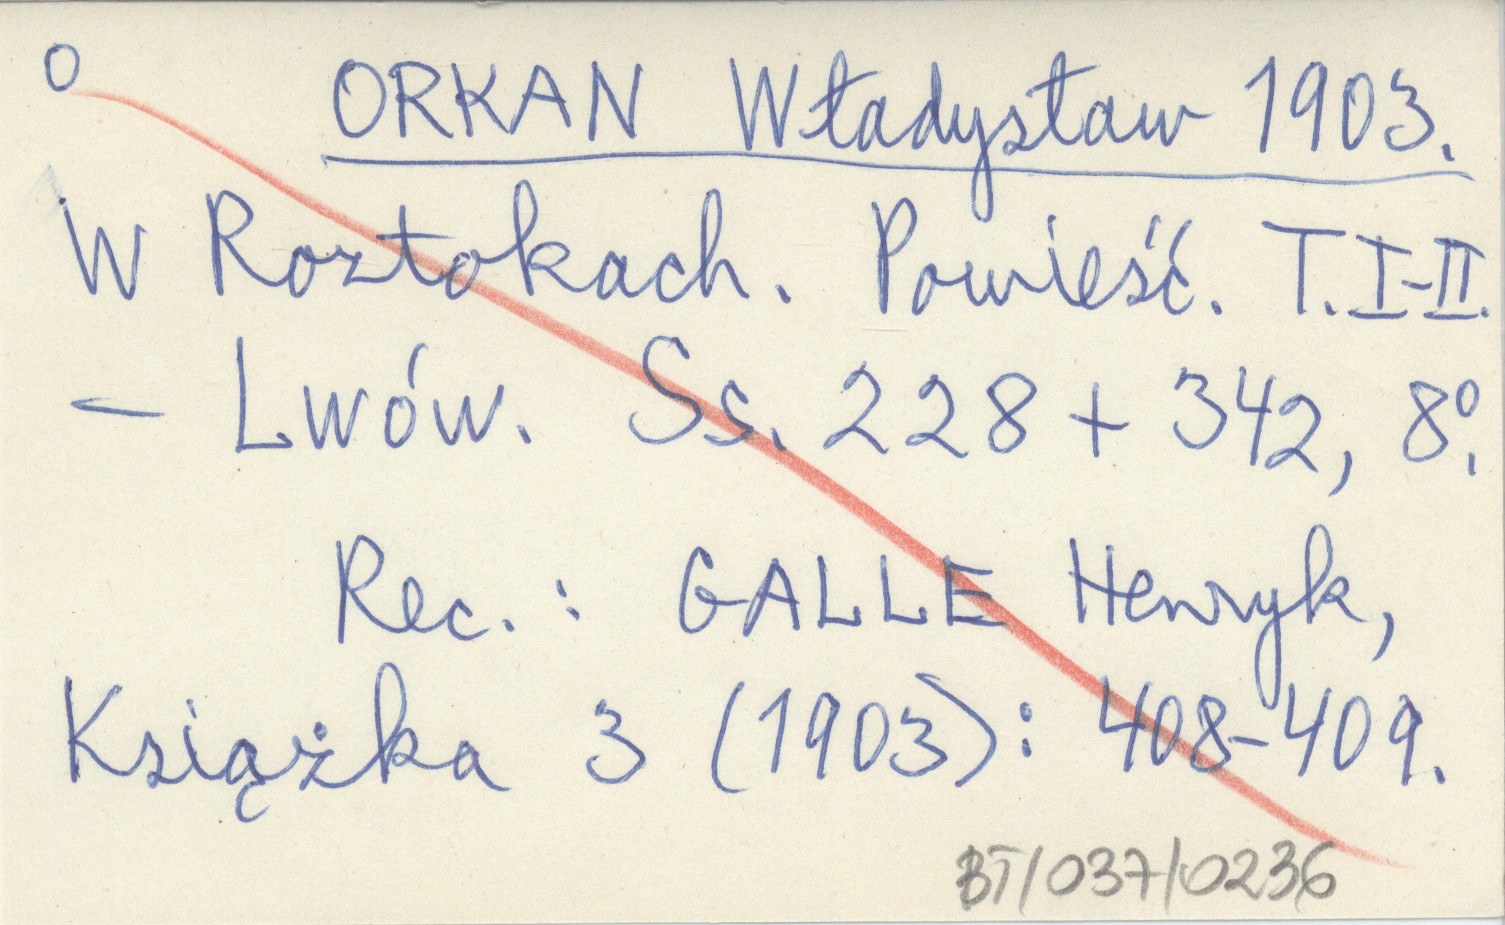 O
ORKAN Władysław 1903.
W Roztokach. Powieść. T. I-II.
- Lwów. Ss. 228 + 342, 8º.
Rec.: GALLE Henryk,
Książka 3 (1903): 408-409.
BT/037/0236